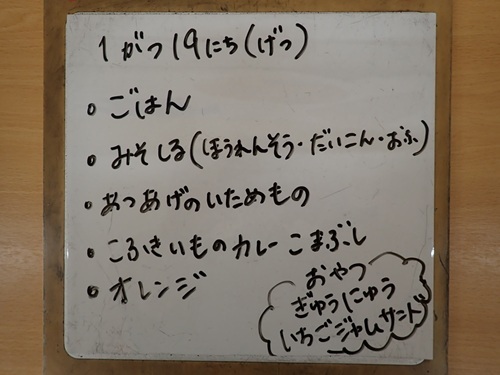 1がつ19にち(げつ)
ごはん
みそしる(ほうれんそう・だいこん・おふ)
あつあげのいためもの
こふきいものカレーこまぶし
オレンジ
おやつ
ぎゅうにゅう
いちごジャムサンド